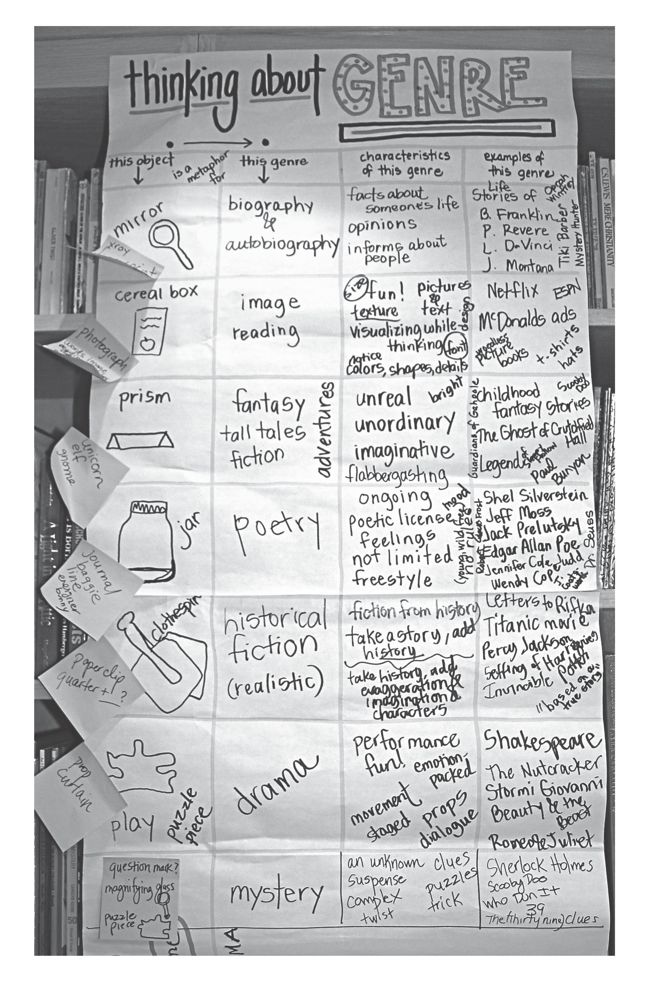 thinking about GENRE
this object
is a metaphor for
this genre
characteristics of this genre
examples of this genre
mirror
biography
&
autobiography
facts about
someone's life
opinions
informs about
people
Life
Stories of
Oprah Winfrey
B. Franklin
P. Revere
L. DaVinci
J. Montana
Tiki Barber
Mystery Hunter
cereal box
image
reading
fun! pictures
&
texture text
design
visualizing while
thinking font
notice
colors, shapes, details
Netflix ESPN
McDonalds ads
picture
books
t-shirts
hats
photograph
prism
fantasy
tall tales
fiction
adventures
unreal bright
unordinary
imaginative
flabbergasting
childhood
fantasy stories
Scooby Doo
The Ghost of
Hall
Legend of
Paul
Bunyon
unicorn
elf
gnome
jar
poetry
ongoing
mood
poetic license
feelings
not limited
freestyle
no rules
(young, wild, free)
Shel Silverstein
Jeff Moss
Jack Prelutsky
Edgar Allan Poe
Jennifer Cole Judd
Wendy Cope
Robert Frost
Dr. Seuss
journal
baggie
line
energizer
bunny
clothespin
historical
fiction
(realistic)
fiction from history
take a story, add
history
take history, add
exaggeration &
imagination &
characters
Letters to Rifka
Titanic movie
Percy Jackson
Setting of Harry
Potter
Invincible
"based on a
true story"
paper clip
quarter + 1?
play
puzzle
piece
drama
performance
fun! emotion-
packed
movement
staged props
dialogue
Shakespeare
The Nutcracker
Stormi Giovanni
Beauty & the
Beast
Romeo & Juliet
prop
curtain
question mark?
magnifying glass
puzzle
piece
mystery
an unknown clues
suspense
puzzles
complex
trick
twist
Sherlock Holmes
Scooby Doo
Who Dun It
39
The (thirty nine) Clues
MA